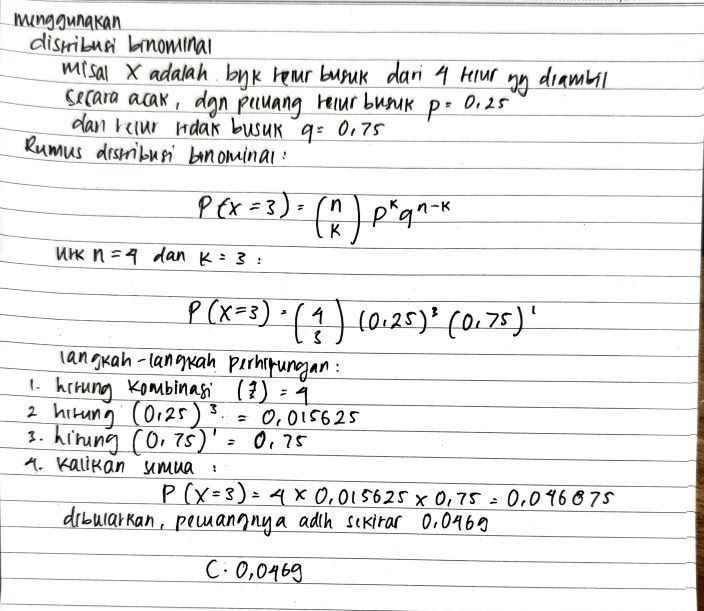 menggunakan
distribusi binominal
misal X adalah byk telur busuk dari 4 telur yg diambil
secara acak, dgn peluang telur busuk p = 0,25
dan telur tidak busuk q = 0,75
Rumus distribusi binominal :
P(x = 3) = (n k) p^k q^n-k
utk n = 4 dan k = 3 :
P(X=3) = (4 3) (0,25)³ (0,75)¹
langkah-langkah perhitungan :
1. hitung kombinasi (4 3) = 4
2 hitung (0,25)³ = 0,015625
3. hitung (0,75)¹ = 0,75
4. Kalikan semua :
P(X=3) = 4 x 0,015625 x 0,75 = 0,046875
dibulatkan, peluangnya adlh sekitar 0,0469
C. 0,0469